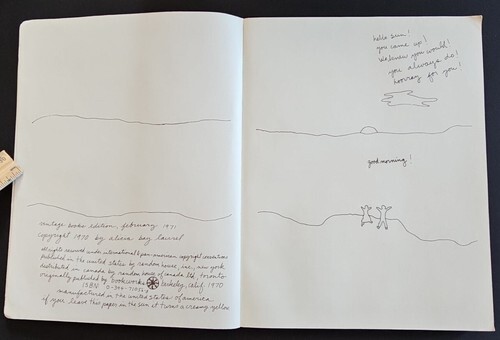 vintage books edition, february 1971
copyright 1970 by alicia bay laurel
all rights reserved under international & pan-american copyright conventions
published in the united states by random house, inc., new york
distributed in canada by random house of canada ltd., toronto
originally published by bookworks berkeley, calif. 1970
ISBN 0-394-71056-
manufactured in the united states of america.
if you leave this paper in the sun it turns a creamy yellow
hello sun!
you came up!
we knew you would!
you always do!
hooray for you!
good morning!